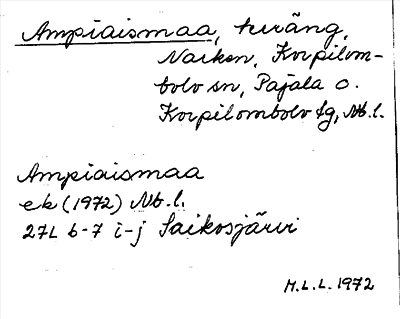 Ampiaismaa, teräng,
Narken, Korpilom-
bolo sn, Pajala o.
Korpilombolo tg, Nb.l.
Ampiaismaa
ek (1972) Nb.l.
27L 6-7 i-j Saikosjärvi
M.L.L. 1972